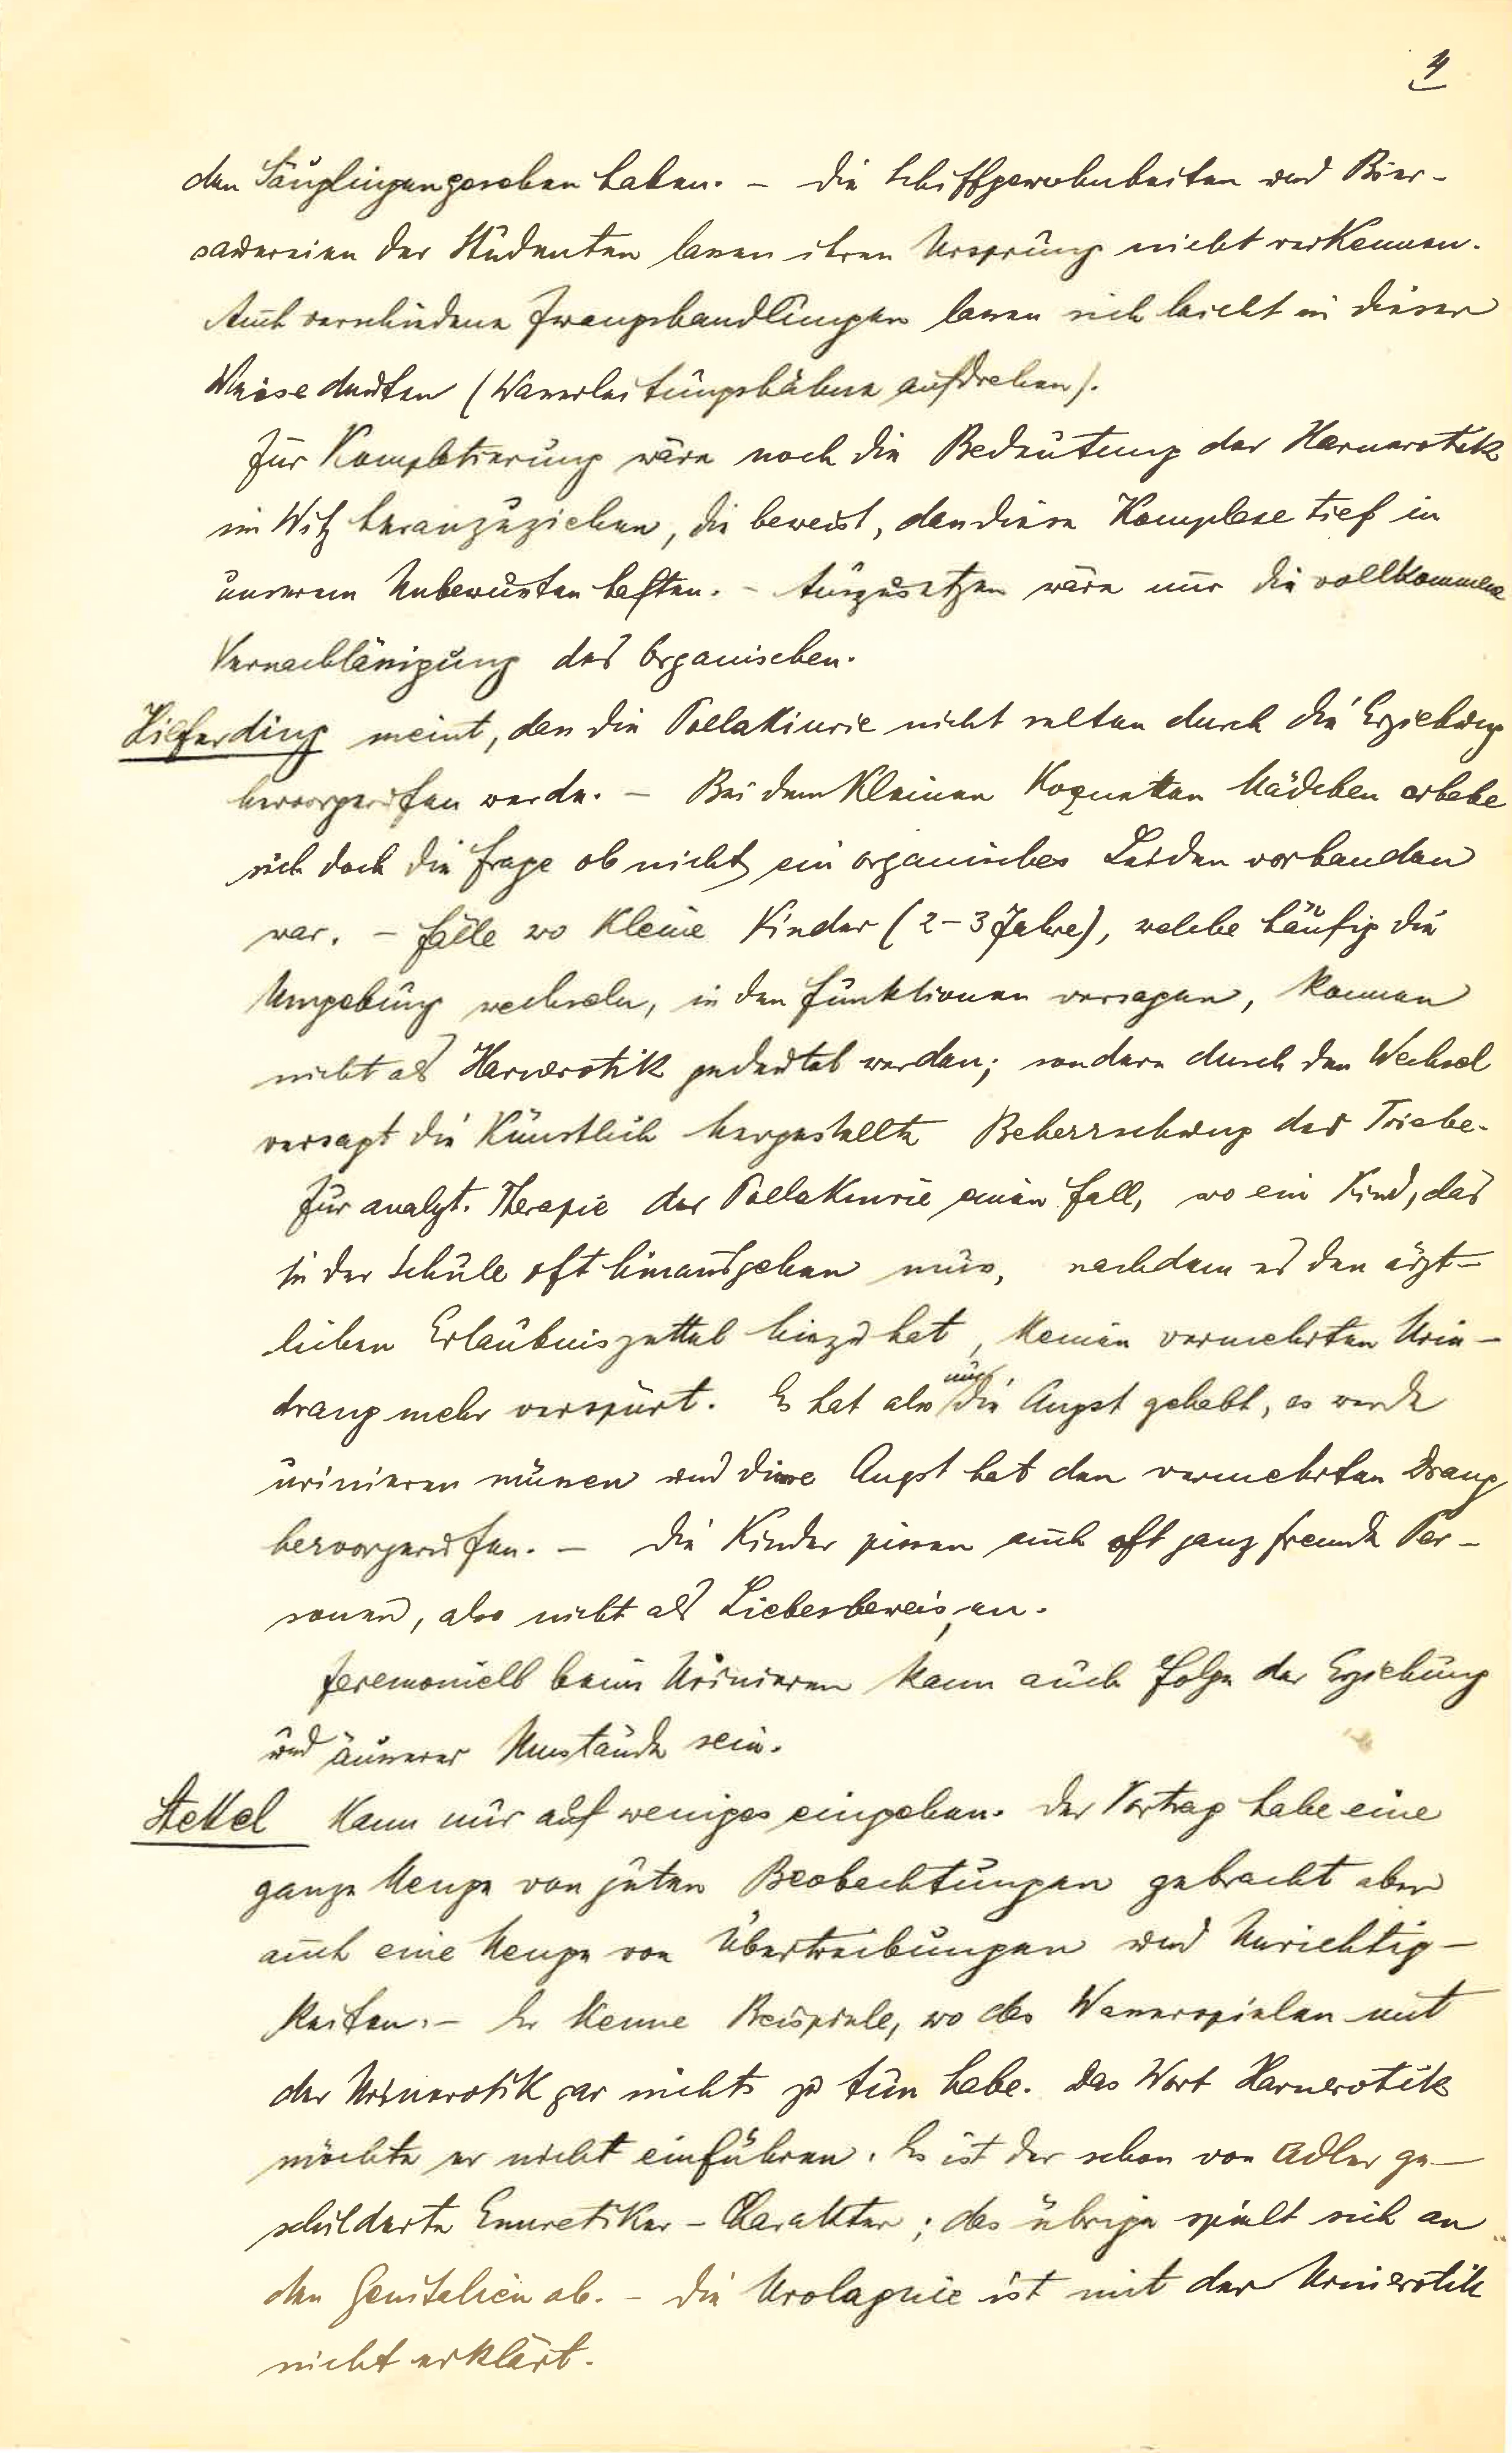 4
den Säuglingen gesehen haben. – Die Schiffgewohnheiten und Bier-
sauereien der Studenten lassen ihren Ursprung nicht verkennen.
Auch verschiedene Zwangshandlungen lassen sich leicht in dieser
Weise deuten (Wasserleitungshähne aufdrehen).
Zur Kompletierung wäre noch die Bedeutung der Harnerotik
im Witz heranzuziehen, die beweist, dass diese Komplexe tief in
unserem Unbewussten haften. – Auszusetzen wäre nur die vollkommene
Vernachlässigung des Organischen.
Hilferding meint, dass die Pollakiurie nicht selten durch die Erziehung
hervorgerufen werde. – Bei dem kleinen koquetten Mädchen erhebe
sich doch die Frage ob nicht ein organisches Leiden vorhanden
war. – Fälle wo kleine Kinder (2–3 Jahre), welche häufig die
Umgebung wechseln, in den Funktionen versagen, können
nicht als Harnerotik gedeutet werden; sondern durch den Wechsel
versagt die künstlich hergestellte Beherrschung der Triebe.
Zur analyt. Therapie der Pollakiurie einen Fall, wo ein Kind, das
in der Schule oft hinausgehen muss, nachdem es den ärzt-
lichen Erlaubniszettel hiezu hat, keinen vermehrten Urin-
drang mehr verspürt. Es hat also nur die Angst gehabt, es werde
urinieren müssen und diese Angst hat den vermehrten Drang
hervorgerufen. – Die Kinder pissen auch oft ganz fremde Per-
sonen, also nicht als Liebesbeweis, an.
Zeremoniell beim Urinieren kann auch Folge der Erziehung
und äusserer Umstände sein.
Stekel kann nur auf weniges eingehen. Der Vortrag habe eine
ganze Menge von guten Beobachtungen gebracht aber
auch eine Menge von Übertreibungen und Unrichtig-
keiten. – Er kenne Beispiele, wo das Wasserspielen mit
der Urinerotik gar nichts zu tun habe. Das Wort Harnerotik
möchte er nicht einführen. Es ist der schon von Adler ge-
schilderte Enuretiker-Charakter; das übrige spielt sich an
den Genitalien ab. – Die Urolagnie ist mit der Urinerotik
nicht erklärt.